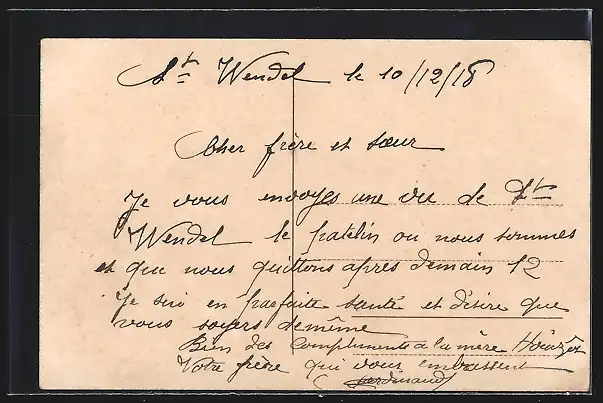 St Wendel le 10/12/18
Cher frère et sœur
Je vous envoyes une vu de St
Wendel le patelin ou nous sommes
et que nous quittons apres demain 12
Je sui en parfaite santé et désire que
vous soyers de même
Bien des compliments a la mère
Votre frère qui vous embrassent
Ferdinand